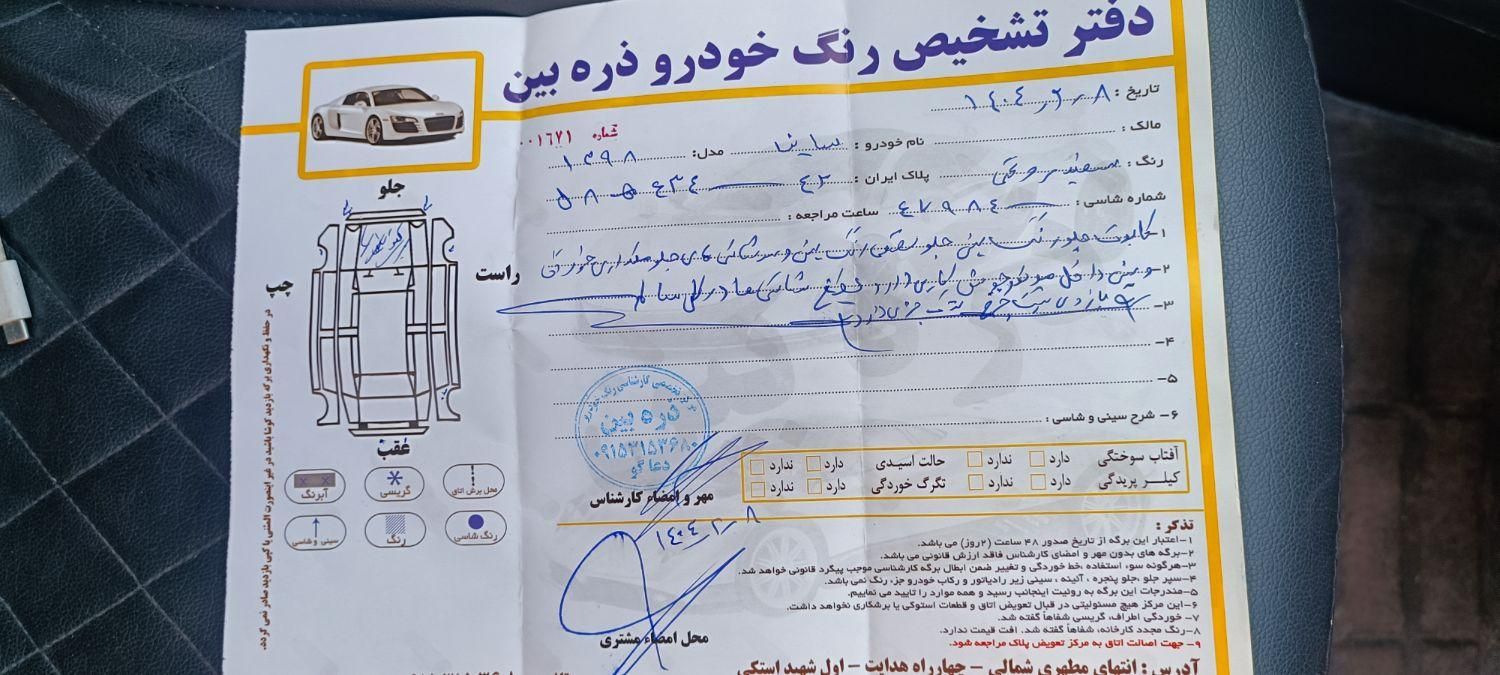 دفتر تشخیص رنگ خودرو ذره بین
شماره ۰۰۱۶۷۱
تاریخ : ۱۴۰۴٫۲٫۸
مالک : نام خودرو : ساینا مدل: ۱۳۹۸
رنگ : سفید روغنی پلاک ایران : ۴۲
شماره شاسی : ۴۷۹۸۴ ساعت مراجعه :
۱- کاپوت جلو رنگ سینی جلو
۲- سینی داخل صندوق جوش کاری دارد شاسی ها در کل سالم
۳-
۴-
۵-
۶- شرح سینی و شاسی :
جلو
راست
چپ
عقب
در حفظ و نگهداری برگه بازدید کوشا باشید در غیر اینصورت المثنی یا کپی بازدید صادر نمی گردد.
محل برش اتاق
گریسی
آبرنگ
رنگ شاسی
رنگ
سینی و شاسی
مرکز تخصصی کارشناسی رنگ خودرو
ذره بین
۰۹۱۵۳۱۵۳۶۸۰
دعاگو
مهر و امضاء کارشناس
آفتاب سوختگی دارد ندارد حالت اسیدی دارد ندارد
کیلر پریدگی دارد ندارد تگرگ خوردگی دارد ندارد
۱۴۰۴٫۲٫۸
محل امضاء مشتری
تذکر :
۱-اعتبار این برگه از تاریخ صدور ۴۸ ساعت (۲روز) می باشد.
۲-برگه های بدون مهر و امضای کارشناس فاقد ارزش قانونی می باشد.
۳-هرگونه سوء استفاده ،خط خوردگی و تغییر ضمن ابطال برگه کارشناسی موجب پیگرد قانونی خواهد شد.
۴-سپر جلو ،جلو پنجره ، آئینه ، سینی زیر رادیاتور و رکاب خودرو جزء رنگ نمی باشد.
۵-مندرجات این برگه به رونیت اینجانب رسید و همه موارد را تایید می نماییم.
۶-این مرکز هیچ مسئولیتی در قبال تعویض اتاق و قطعات استوکی یا برشکاری نخواهد داشت.
۷- خوردگی اطراف، گریسی شفاهاً گفته شد.
۸-رنگ مجدد کارخانه، شفاهاً گفته شد. افت قیمت ندارد.
۹- جهت اصالت اتاق به مرکز تعویض پلاک مراجعه شود.
آدرس : انتهای مطهری شمالی - چهارراه هدایت - اول شهید استکی